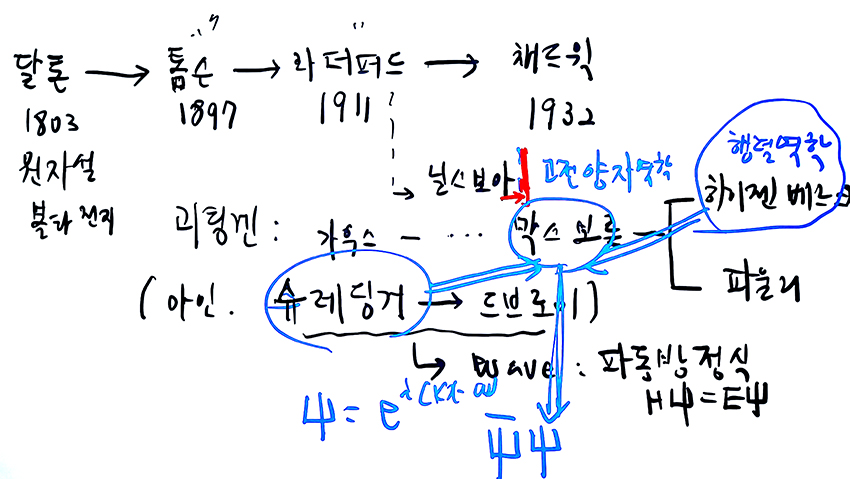 달톤 → 톰슨 → 라더퍼드 → 채드윅
1803 1897 1911 1932
원자설
닐스보아 고전양자역학
행렬역학
하이젠베르크
볼타전지
괴팅겐 : 가우스 - ... 막스보른
파울리
(아인. 슈레딩거 → 드브로이)
→ Wave : 파동방정식
HΨ=EΨ
Ψ = e^i(kx-ω)
Ψ̄Ψ